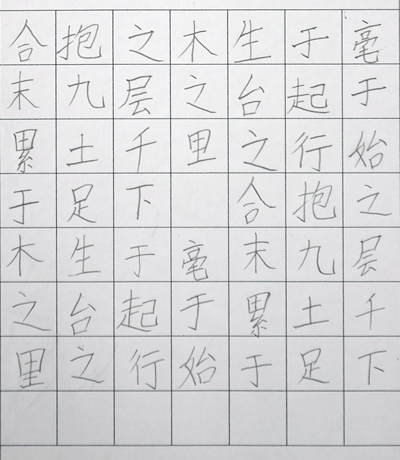 合抱之木生于毫
末九层之台起于
累土千里之行始
于足下 合抱之
木生于毫末九层
之台起于累土千
里之行始于足下